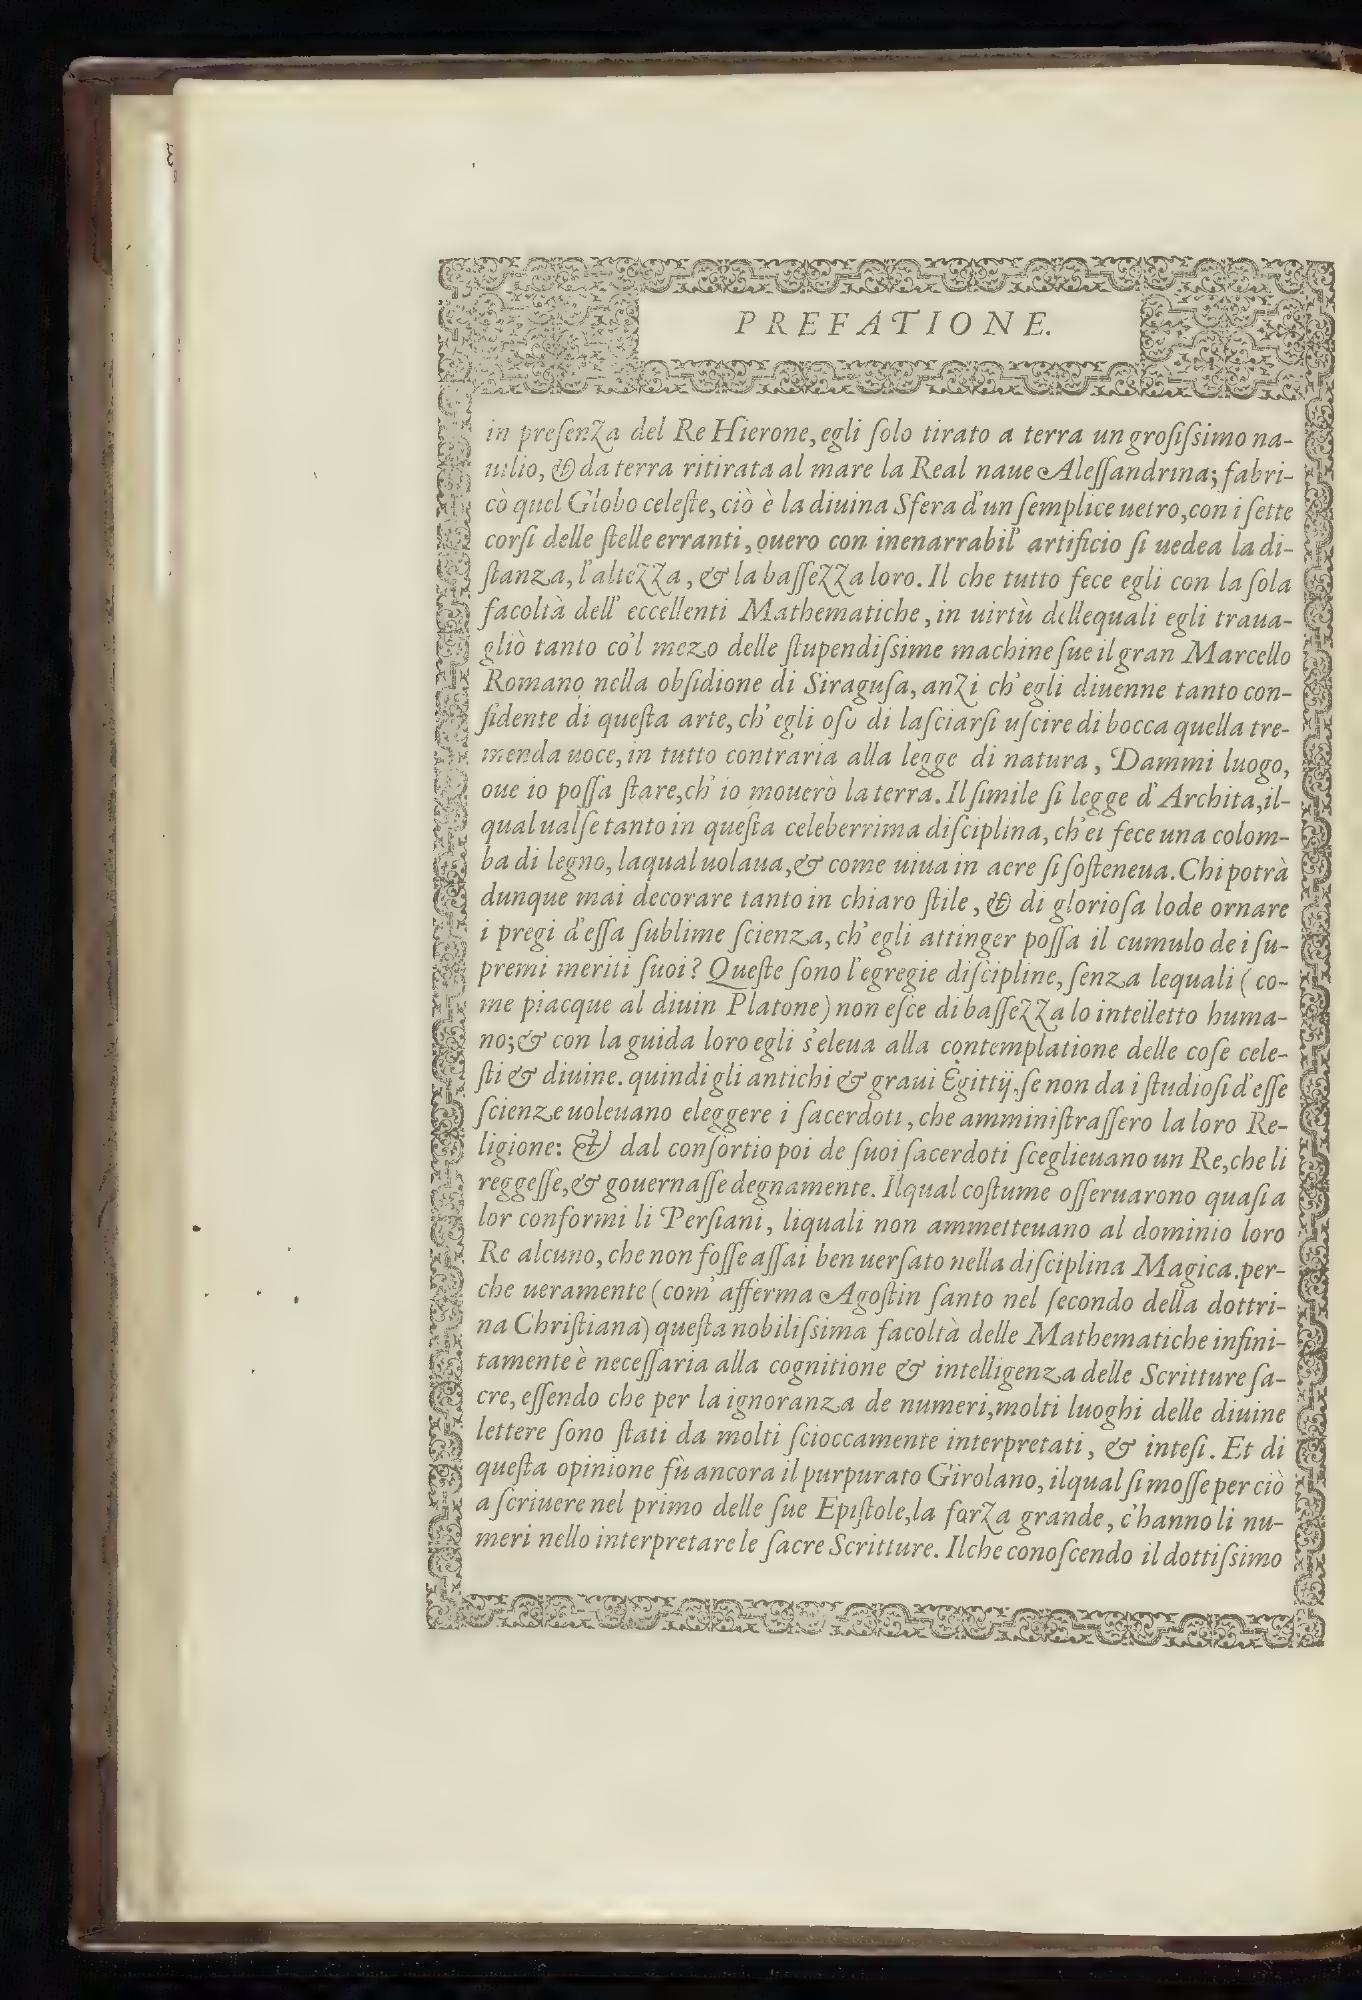 PREFATIONE.
in preſenza del Re Hierone, egli ſolo tirato a terra un groſiſsimo na-
uilio, & da terra ritirata al mare la Real naue Aleſſandrina; fabri-
cò quel Globo celeſte, ciò è la diuina Sfera d'un ſemplice uetro, con i ſette
corſi delle ſtelle erranti, ouero con inenarrabil' artificio ſi uedea la di-
ſtanza, l'altezza, & la baſſezza loro. Il che tutto fece egli con la ſola
facoltà dell' eccellenti Mathematiche, in uirtù dellequali egli traua-
gliò tanto co'l mezo delle ſtupendiſsime machine ſue il gran Marcello
Romano nella obſidione di Siraguſa, anzi ch'egli diuenne tanto con-
fidente di queſta arte, ch'egli oſò di laſciarſi uſcire di bocca quella tre-
menda uoce, in tutto contraria alla legge di natura, Dammi luogo,
oue io poſſa ſtare, ch' io mouerò la terra. Il ſimile ſi legge d'Archita, il-
qual ualſe tanto in queſta celeberrima diſciplina, ch'ei fece una colom-
ba di legno, laqual uolaua, & come uiua in aere ſi ſoſteneua. Chi potrà
dunque mai decorare tanto in chiaro ſtile, & di glorioſa lode ornare
i pregi d'eſſa ſublime ſcienza, ch'egli attinger poſſa il cumulo de i ſu-
premi meriti ſuoi? Queſte ſono l'egregie diſcipline, ſenza lequali (co-
me piacque al diuin Platone) non eſce di baſſezza lo intelletto huma-
no; & con la guida loro egli s'eleua alla contemplatione delle coſe cele-
ſti & diuine. quindi gli antichi & graui Egittij, ſe non da i ſtudioſi d'eſſe
ſcienze uoleuano eleggere i ſacerdoti, che amminiſtraſſero la loro Re-
ligione: & dal conſortio poi de ſuoi ſacerdoti ſceglieuano un Re, che li
reggeſſe, & gouernaſſe degnamente. Ilqual coſtume oſſeruarono quaſi a
lor conformi li Perſiani, liquali non ammetteuano al dominio loro
Re alcuno, che non foſſe aſſai ben uerſato nella diſciplina Magica. per-
che ueramente (com' afferma Agoſtin ſanto nel ſecondo della dottri-
na Chriſtiana) queſta nobiliſsima facoltà delle Mathematiche infini-
tamente è neceſſaria alla cognitione & intelligenza delle Scritture ſa-
cre, eſſendo che per la ignoranza de numeri, molti luoghi delle diuine
lettere ſono ſtati da molti ſcioccamente interpretati, & inteſi. Et di
queſta opinione fù ancora il purpurato Girolano, ilqual ſi moſſe per ciò
a ſcriuere nel primo delle ſue Epiſtole, la forza grande, c'hanno li nu-
meri nello interpretare le ſacre Scritture. Ilche conoſcendo il dottiſsimo